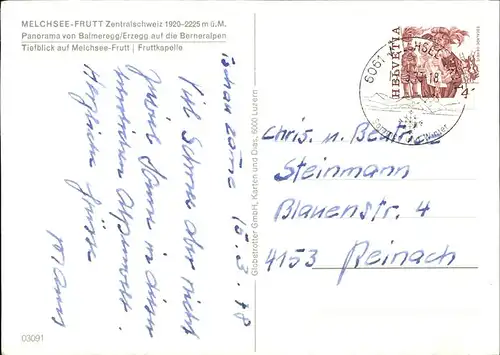 MELCHSEE-FRUTT Zentralschweiz 1920-2225 m ü.M.
Panorama von Balmeregg/Erzegg auf die Berneralpen
Tiefblick auf Melchsee-Frutt | Fruttkapelle
15.3.78
Viel Schnee aber nicht
Sonne in dieser
Herzliche Grüsse
03091
Globetrotter GmbH, Karten und Dias, 6000 Luzern
HELVETIA
6061
Chris. u. Beatrice
Steinmann
Blauenstr. 4
4153 Reinach